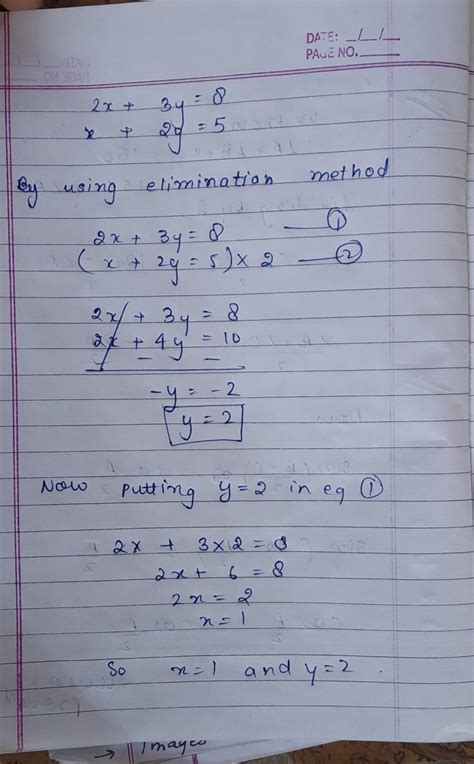 DATE: _/_/_
PAGE NO.____
2x + 3y = 8
x + 2y = 5
By using elimination method
2x + 3y = 8 — ①
( x + 2y = 5 ) × 2 — ②
2x + 3y = 8
2x + 4y = 10
− − −
-y = -2
y = 2
Now putting y=2 in eq ①
2x + 3×2 = 8
2x + 6 = 8
2x = 2
x = 1
So x=1 and y=2 .
→